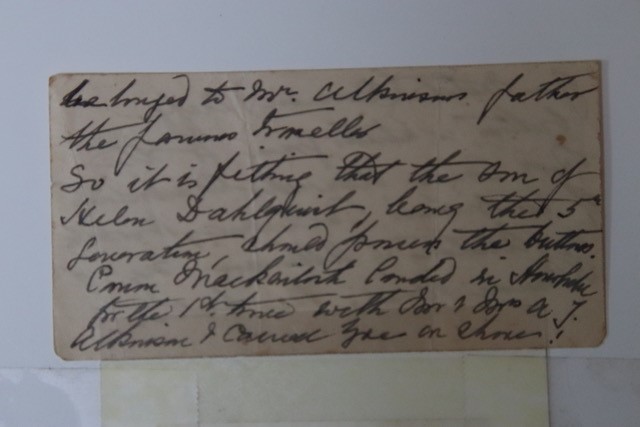 belonged to Mr. Atkinsons father
the famous Traveller
So it is fitting that the son of
Helen Dahlquist, being the 5th
Generation, should possess the buttons.
Emma Mackintosh landed in Honolulu
for the 1st time with Mr & Mrs A. T.
Atkinson & carried Zoe on shore!